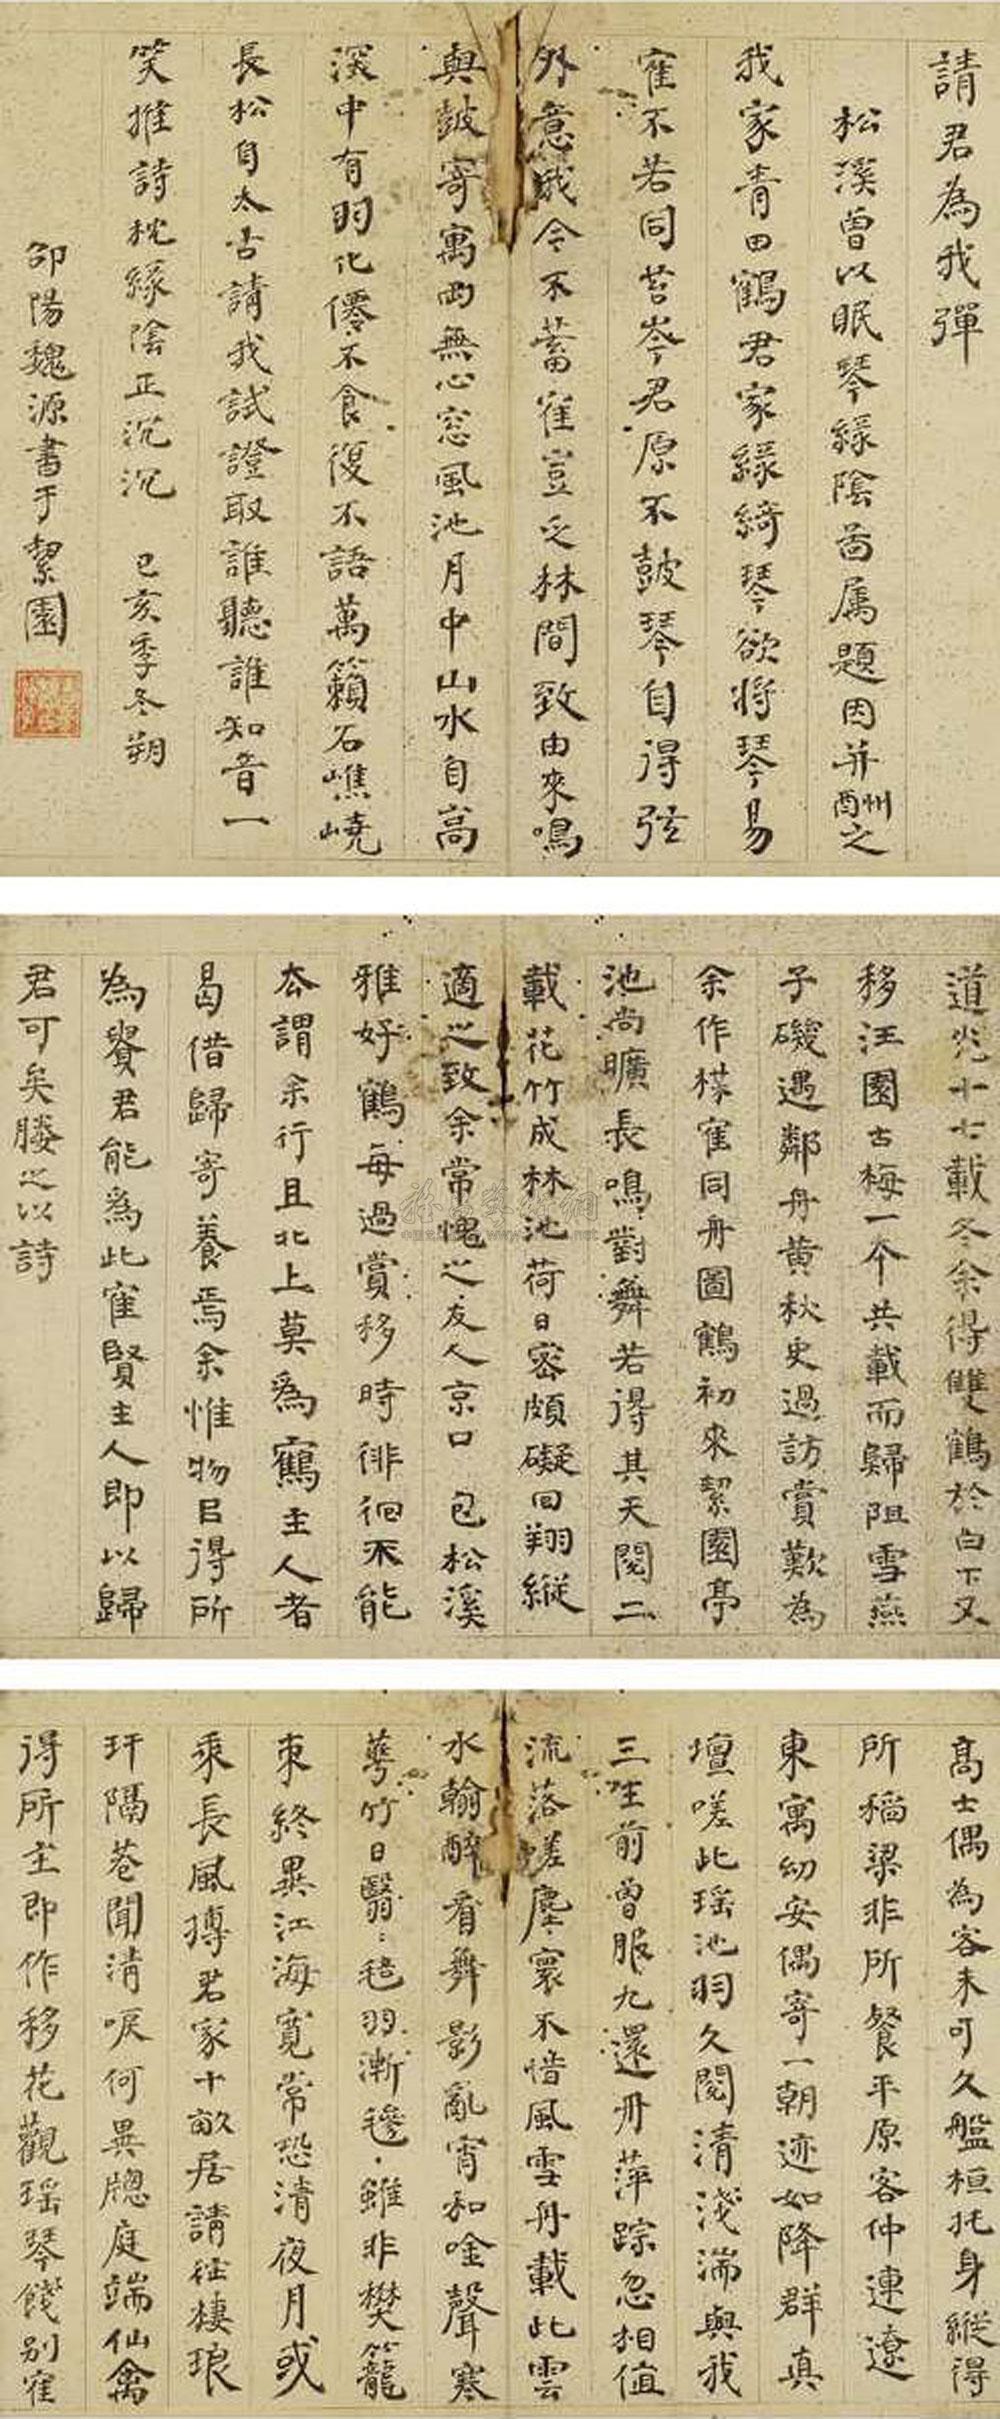 請君為我彈
松溪曾以眠琴綠陰圖属題因并酬之
我家青田鶴君家綠綺琴欲將琴易
寉不若同苔岑君原不鼓琴自得弦
外意我今不蓄寉豈乏林間致由來鳴
與鼓寄寓兩無心窓風池月中山水自高
深中有羽化僊不食復不語萬籟石嶕嶢
長松自太古請我試證取誰聽誰知音一
笑推詩枕綠陰正沉沉 己亥季冬朔
邵陽魏源書于絜園
道光十七載冬余得雙鶴於白下又
移汪園古梅一本共載而歸阻雪燕
子磯遇鄰舟黄秋史過訪賞歎為
余作楳寉同舟圖鶴初來絜園亭
池尚曠長鳴對舞若得其天閱二
載花竹成林池荷日密頗礙回翔縱
適之致余常愧之友人京口包松溪
雅好鶴每過賞移時徘徊不能
去謂余行且北上莫為鶴主人者
曷借歸寄養焉余惟物㠯得所
為貴君能為此寉賢主人即以歸
君可矣媵之以詩
高士偶為客未可久盤桓托身縱得
所稻粱非所餐平原客仲連遼
東寓幼安偶寄一朝迹如降群真
壇嗟此瑤池羽久閱清淺湍與我
三生前曾服九還丹萍踪忽相值
流落嗟塵寰不惜風雪舟載此雲
水翰醉看舞影亂宵和唫聲寒
萼竹日翳〻毰羽漸毿〻雖非樊籠
束終異江海寬常恐清夜月或
乘長風搏君家十畝居請往棲琅
玕隔巷聞清唳何異牕庭端仙禽
得所主即作移花觀瑤琴餞別寉